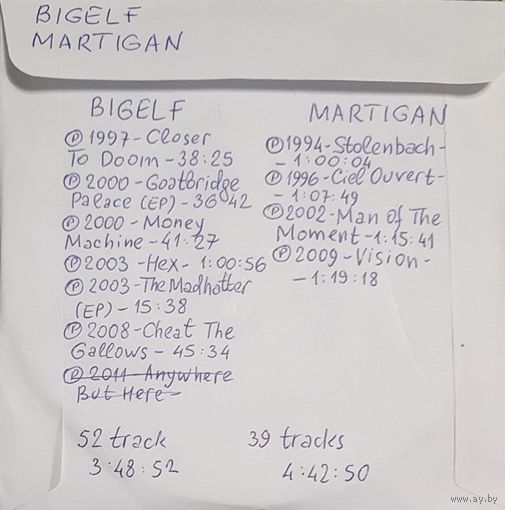 BIGELF
MARTIGAN
BIGELF
Ⓟ 1997-Closer
To Doom - 38:25
Ⓟ 2000 - Goatbridge
Palace (EP) - 36:42
Ⓟ 2000 - Money
Machine - 41:27
Ⓟ 2003 - Hex - 1:00:56
Ⓟ 2003 - The Madhatter
(EP) - 15:38
Ⓟ 2008 - Cheat The
Gallows - 45:34
Ⓟ 2011 - Anywhere
But Here -
52 track
3:48:52
MARTIGAN
Ⓟ 1994 - Stolenbach -
- 1:00:04
Ⓟ 1996 - Ciel Ouvert -
- 1:07:49
Ⓟ 2002 - Man Of The
Moment - 1:15:41
Ⓟ 2009 - Vision -
- 1:19:18
39 tracks
4:42:50
www.ay.by